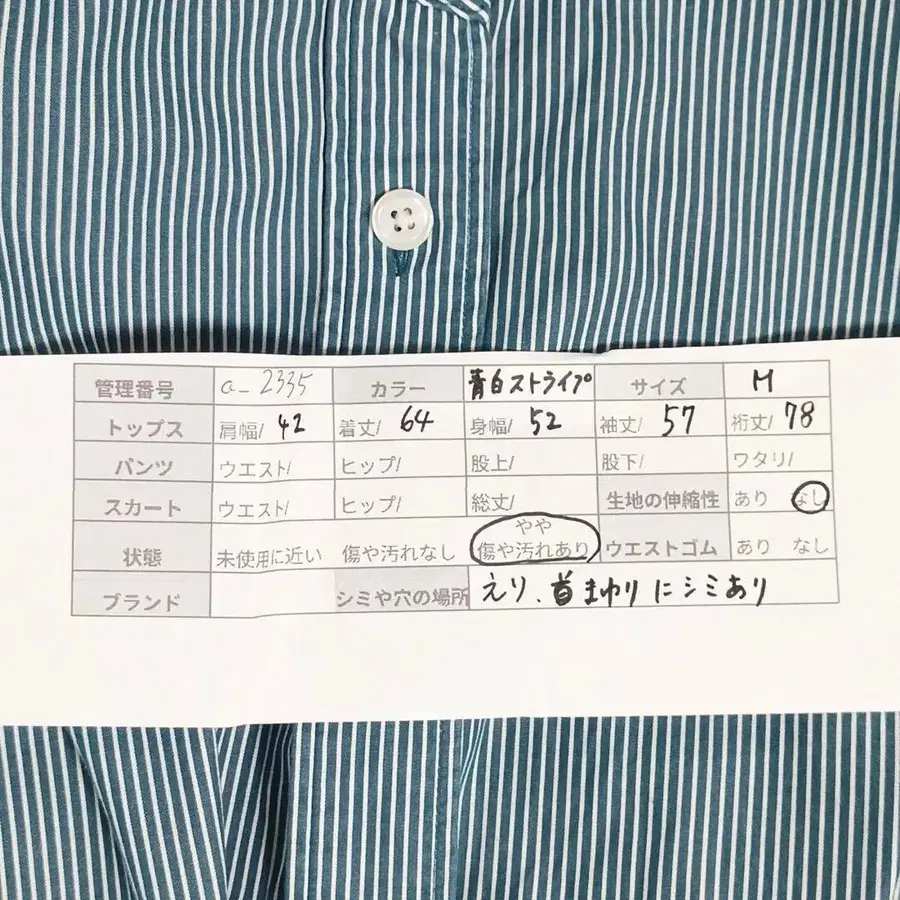 管理番号 a-2335 カラー 青白ストライプ サイズ M
トップス 肩幅/ 42 着丈/ 64 身幅/ 52 袖丈/ 57 裄丈/ 78
パンツ ウエスト/ ヒップ/ 股上/ 股下/ ワタリ/
スカート ウエスト/ ヒップ/ 総丈/ 生地の伸縮性 あり なし
状態 未使用に近い 傷や汚れなし やや傷や汚れあり ウエストゴム あり なし
ブランド シミや穴の場所 えり、首まわりにシミあり